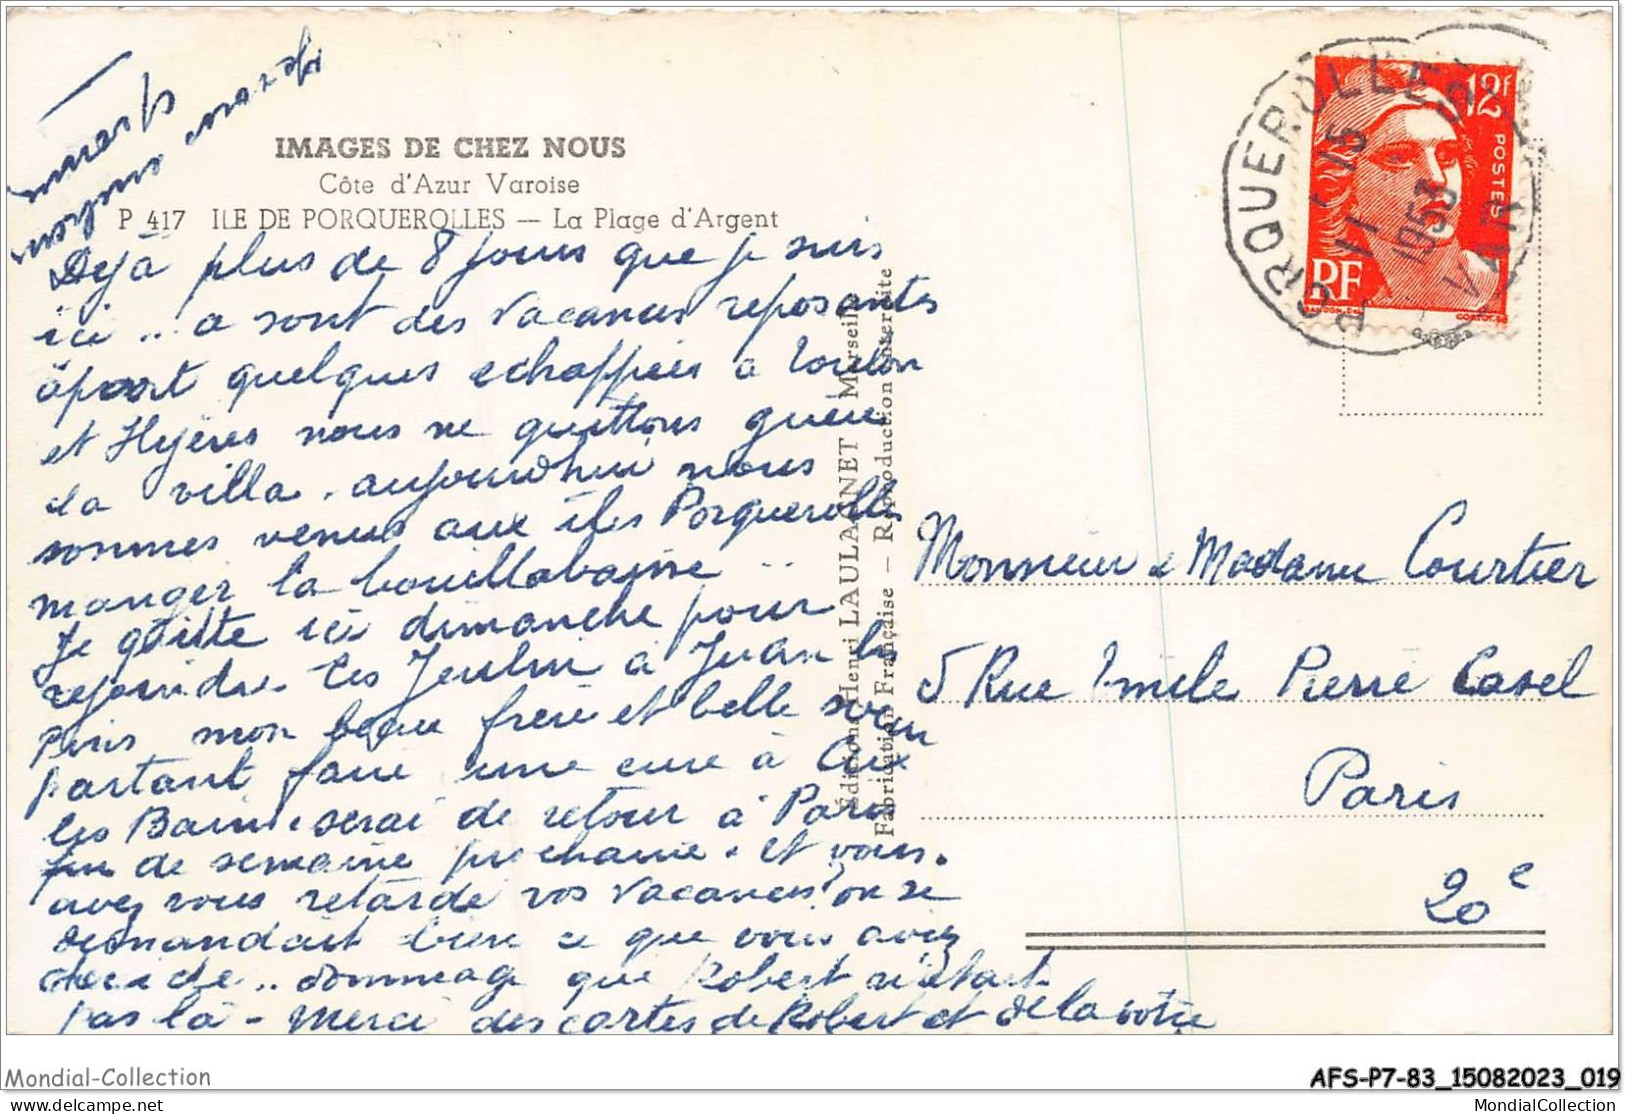 IMAGES DE CHEZ NOUS
Côte d'Azur Varoise
P 417 ILE DE PORQUEROLLES — La Plage d'Argent
Déjà plus de 8 jours que je suis
ici .. a sont des vacances reposantes
àpart quelques echappées a Toulon
et Hyères nous ne quittons guère
la villa . aujourd'hui nous
sommes venus aux iles Porquerolles
manger la bouillabaisse ..
Je quitte ici dimanche pour
rejoindre les à Juan les
Pins mon beau frère et belle soeur
partant faire une cure à Aix
les Bains serai de retour à Paris
fin de semaine prochaine . et vous.
avez vous retardé vos vacances? on se
demandait bien ce que vous aviez
décidé .. dommage que Robert n'était
pas là - Merci des cartes de Robert et de la votre
Éditions Henri LAULAGNET Marseille
Fabrication Française — Reproduction interdite
12f
POSTES
RF
GANDON.DEL
CORTOT.SC
PORQUEROLLES
15
VI
1953
VAR
Monsieur & Madame Courtier
5 Rue Emile Pierre Casel
Paris
20e
Mondial-Collection
AFS-P7-83_15082023_019
delcampe.net
MondialCollection